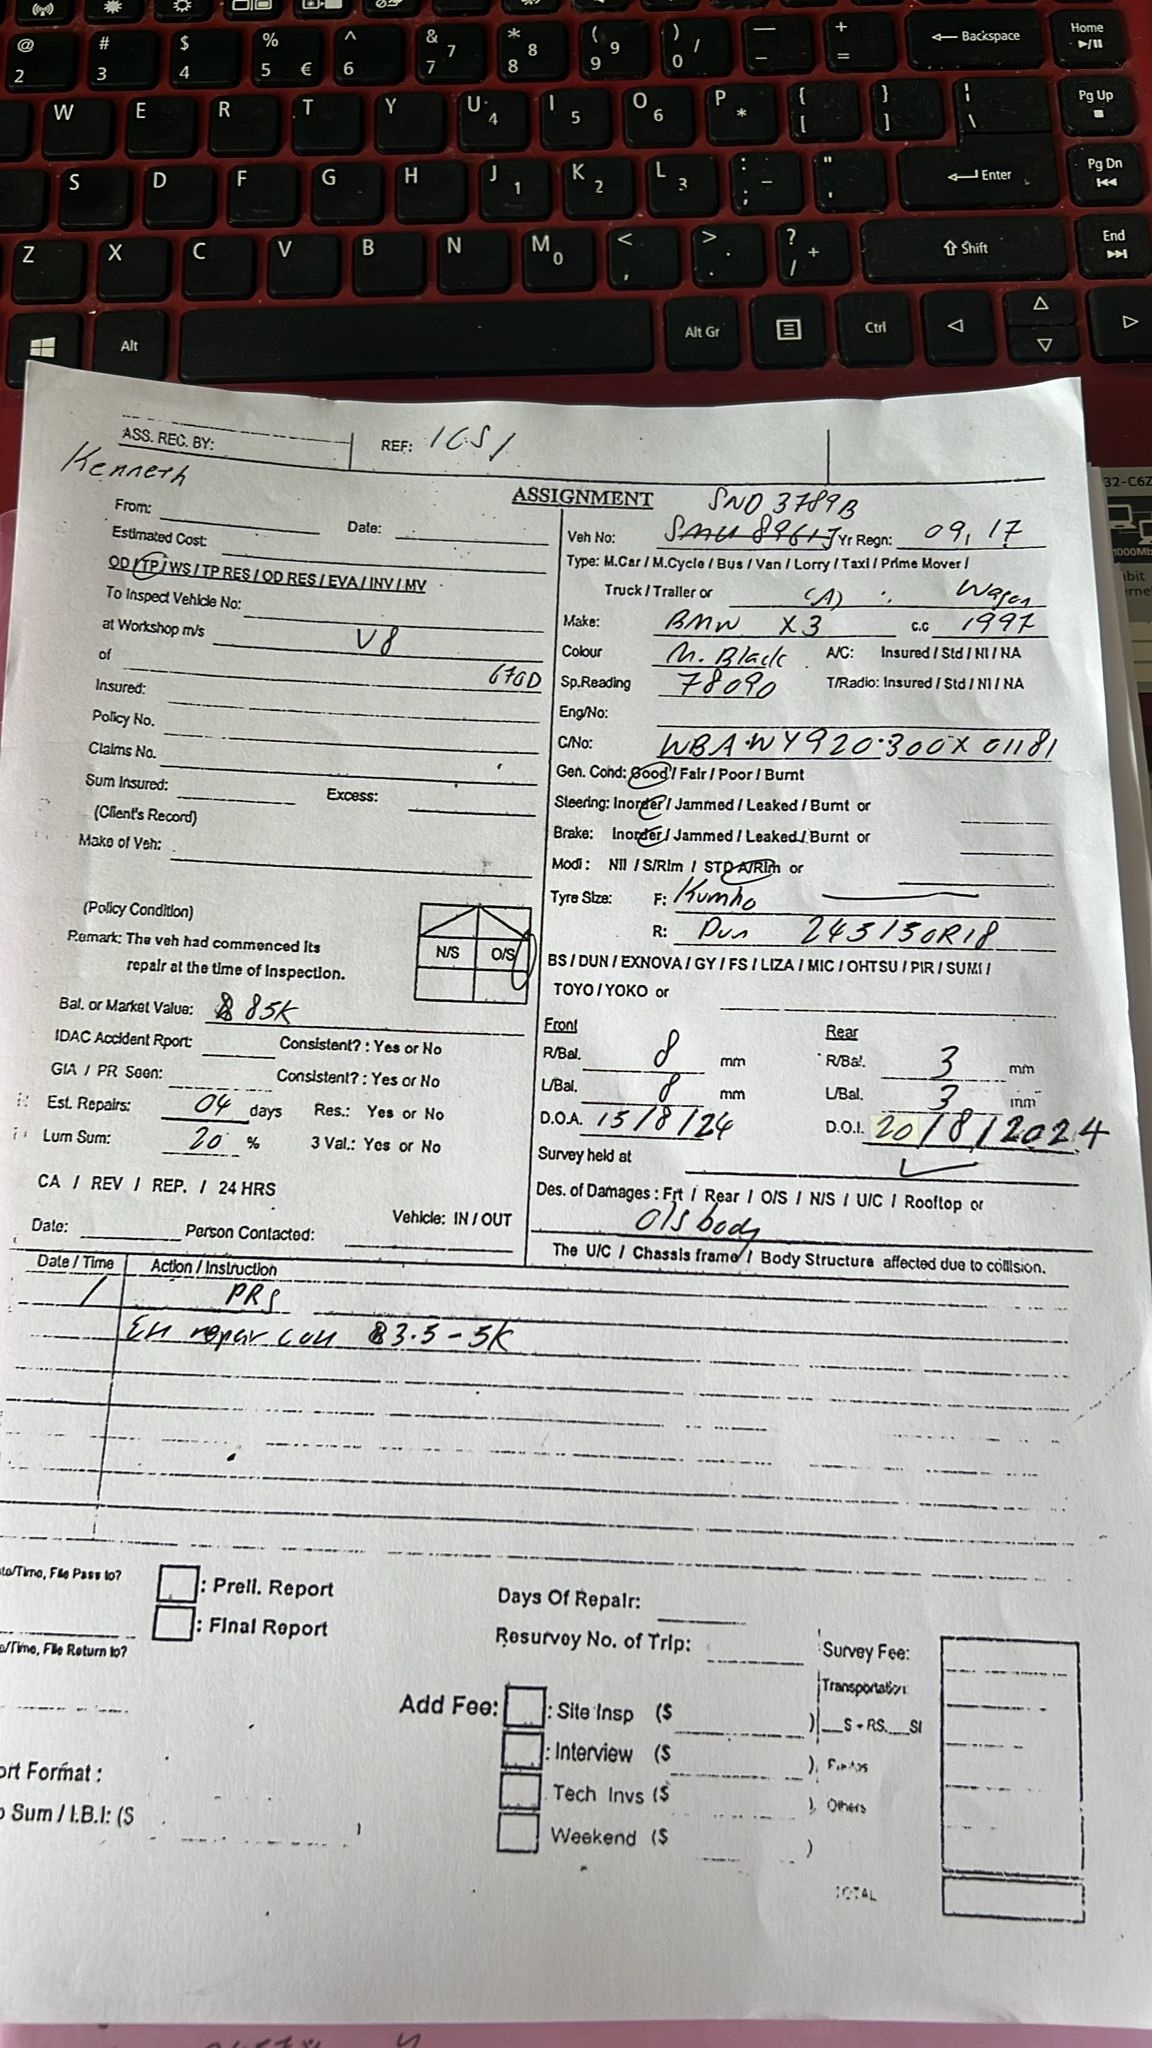 @ # $ % ^ & * ( ) — +
2 3 4 5 € 6 7 7 8 8 9 9 0 / _ = Backspace Home
W E R T Y U 4 I 5 O 6 P * { [ } ] ¦ \ Pg Up
S D F G H J 1 K 2 L 3 : ; - " ' Enter Pg Dn
Z X C V B N M 0 < , > . ? / + Shift End
Alt Alt Gr Ctrl
32-C6Z
1000Mb
ASS. REC. BY:
Kenneth
REF:
ASSIGNMENT
From: Date:
Estimated Cost:
OD / TP / WS / TP RES / OD RES / EVA / INV / MV
To Inspect Vehicle No:
at Workshop m/s V8
of
Insured:
Policy No.
Claims No.
Sum Insured: Excess:
(Client's Record)
Make of Veh:
(Policy Condition)
Remark: The veh had commenced its
repair at the time of inspection.
N/S O/S
Bal. or Market Value: $ 85K
IDAC Accident Rport: Consistent? : Yes or No
GIA / PR Seen: Consistent? : Yes or No
Est. Repairs: 04 days Res.: Yes or No
Lum Sum: 20 % 3 Val.: Yes or No
CA / REV / REP. / 24 HRS
Date: Person Contacted: Vehicle: IN / OUT
SND 3789B
Veh No: Yr Regn: 09, 17
Type: M.Car / M.Cycle / Bus / Van / Lorry / Taxi / Prime Mover /
Truck / Trailer or (A) Wagon
Make: BMW X3 C.C 1997
Colour M. Black A/C: Insured / Std / NI / NA
Sp.Reading 78090 T/Radio: Insured / Std / NI / NA
Eng/No:
C/No: WBA.WY920.300X01181
Gen. Cond: Good / Fair / Poor / Burnt
Steering: Inorder / Jammed / Leaked / Burnt or
Brake: Inorder / Jammed / Leaked / Burnt or
Modi: Nil / S/Rim / STD A/Rim or
Tyre Size: F: Kumho
R: Dun 245/50R18
BS / DUN / EXNOVA / GY / FS / LIZA / MIC / OHTSU / PIR / SUMI /
TOYO / YOKO or
Front Rear
R/Bal. 8 mm R/Bal. 3 mm
L/Bal. 8 mm L/Bal. 3 mm
D.O.A. 15/8/24 D.O.I. 20/8/2024
Survey held at
Des. of Damages : Frt / Rear / O/S / N/S / U/C / Rooftop or
O/S body
The U/C / Chassis frame / Body Structure affected due to collision.
Date / Time Action / Instruction
PRS
repair $3.5 - 5K
File Pass to?
: Preli. Report
: Final Report
File Return to?
Days Of Repair:
Resurvey No. of Trip:
Survey Fee:
Transportation
Add Fee: : Site Insp ($ ) S + RS. SI
: Interview ($ )
Tech Invs ($ ) Others
Weekend ($ )
TOTAL
ort Format :
Sum / I.B.I: ($ )